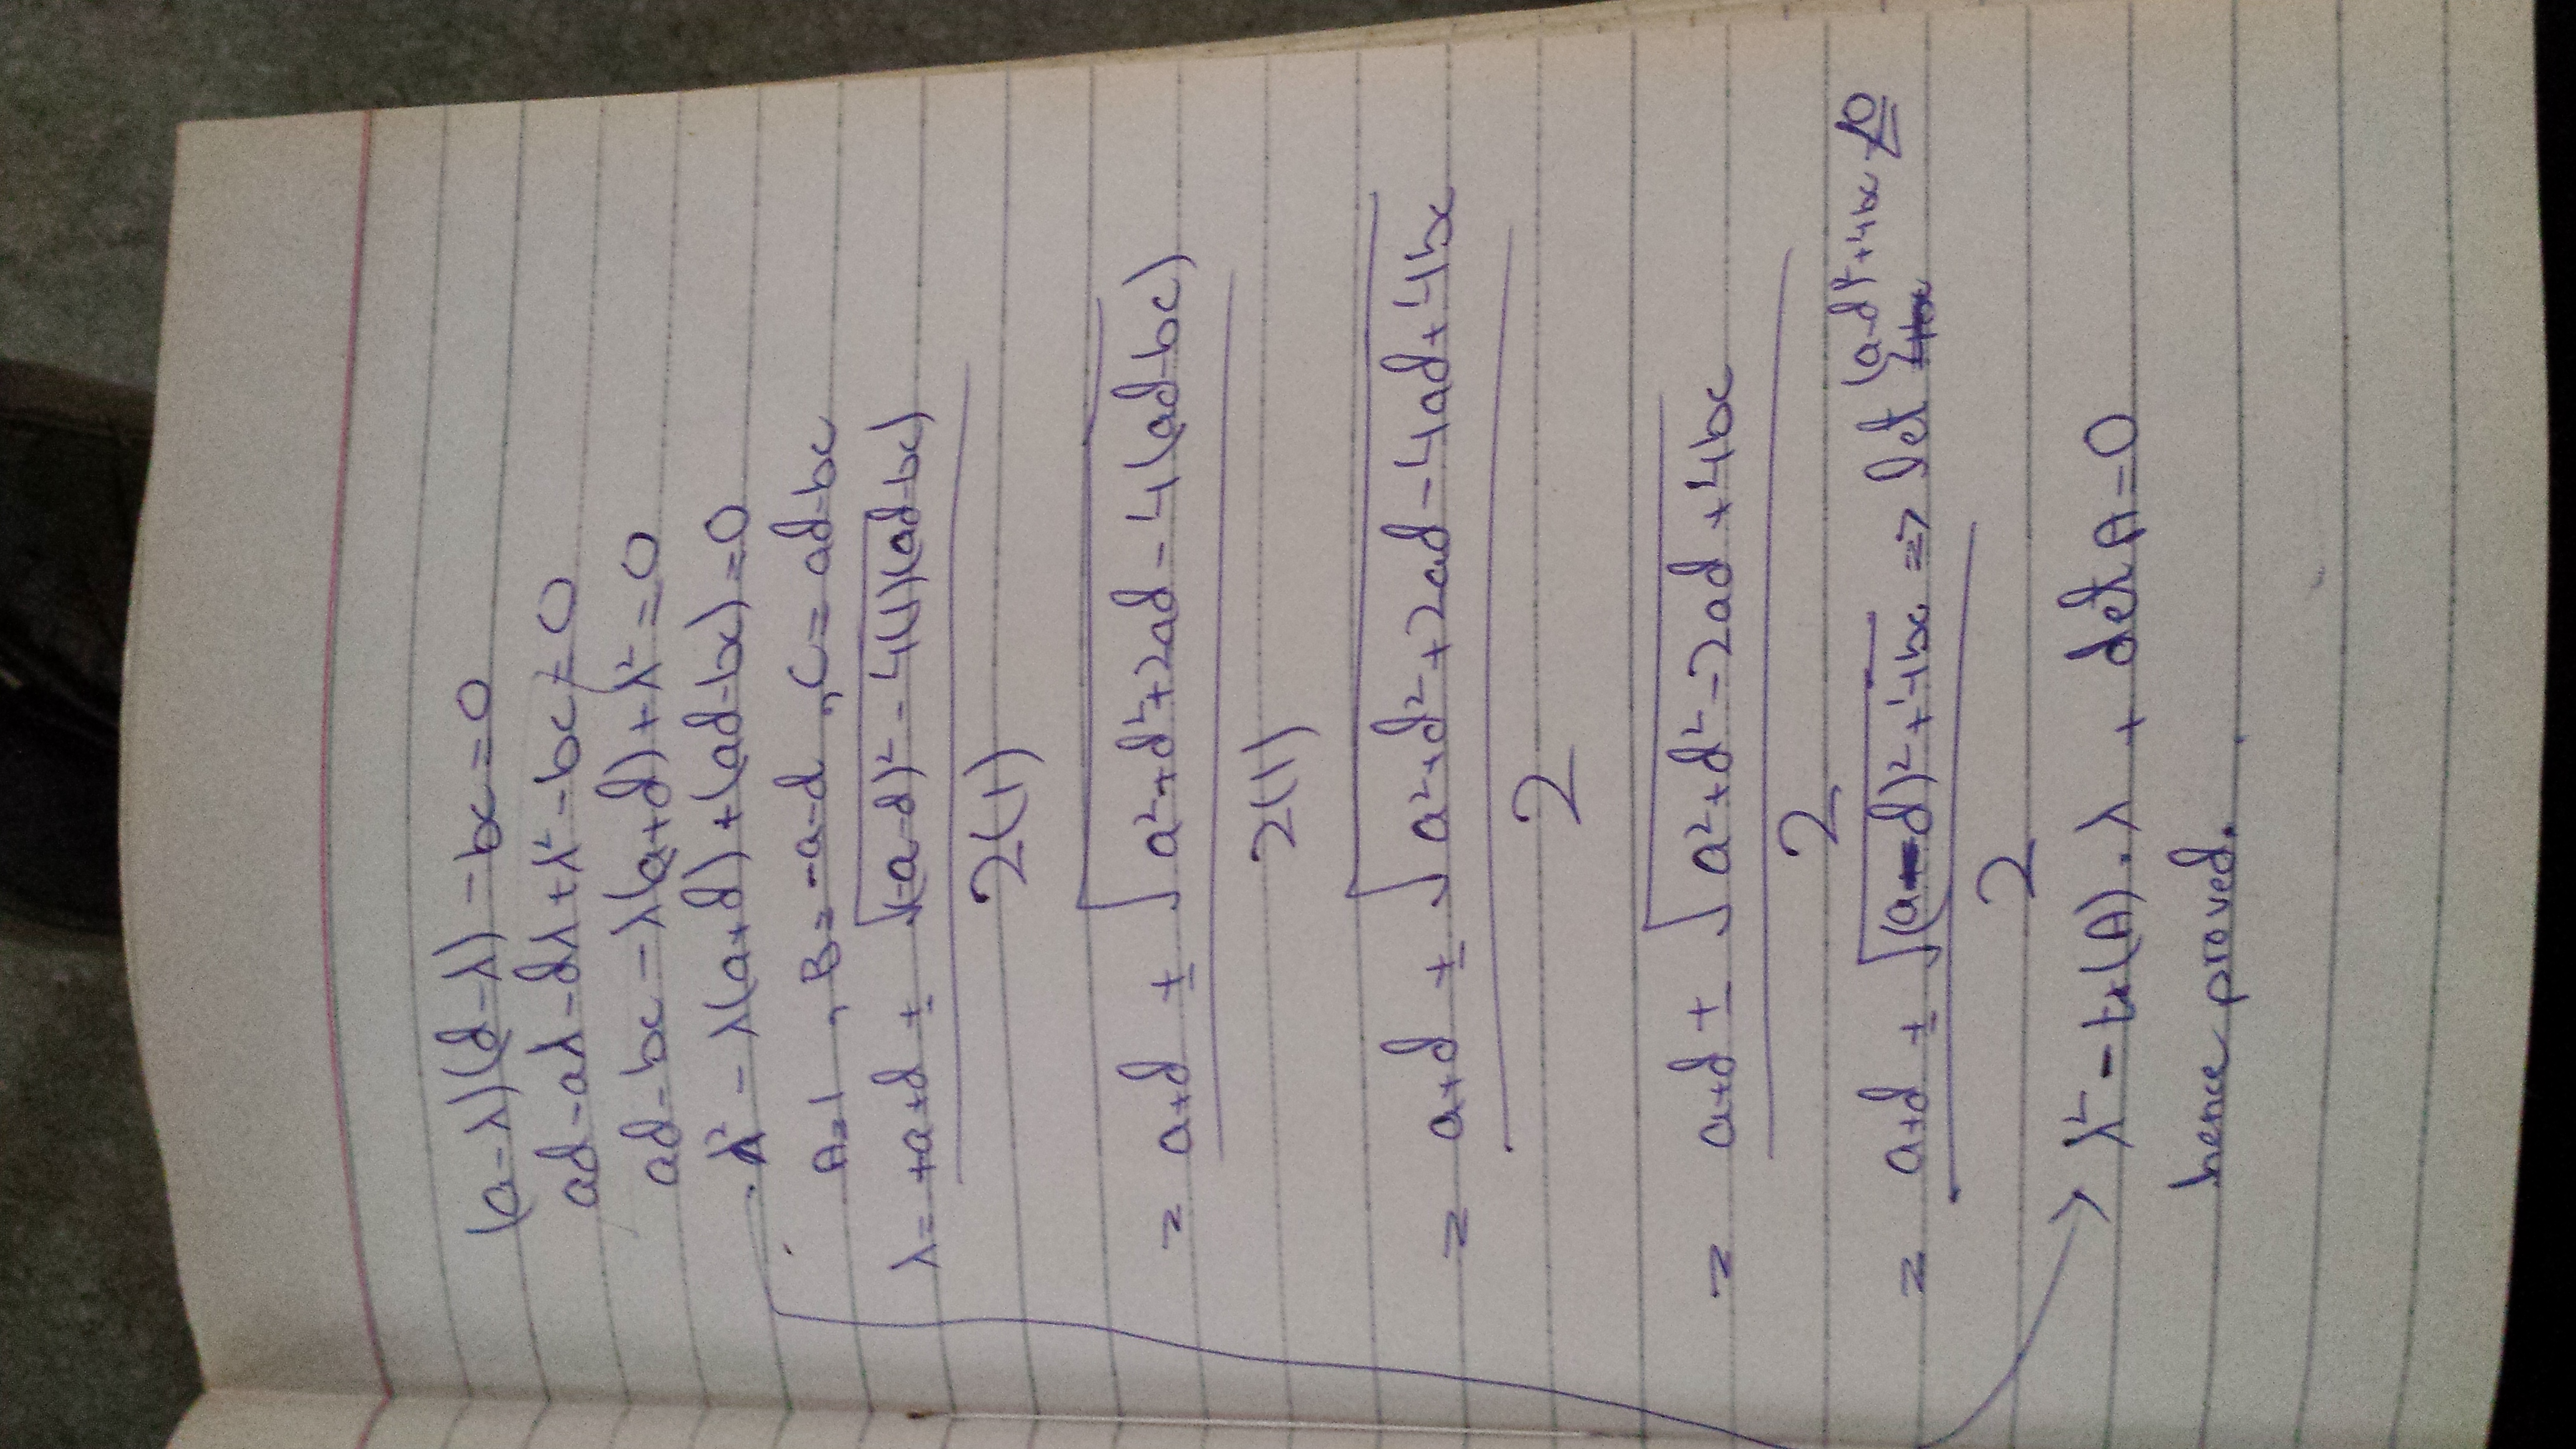 (a-λ)(d-λ) - bc = 0
ad - aλ - dλ + λ² - bc = 0
ad - bc - λ(a+d) + λ² = 0
λ² - λ(a+d) + (ad-bc) = 0
A=1, B= -a-d, C= ad-bc
λ = +a+d ± √(-a-d)² - 4(1)(ad-bc)
2(1)
= a+d ± √a²+d²+2ad-4(ad-bc)
2(1)
= a+d ± √a²+d²+2ad-4ad+4bc
2
= a+d ± √a²+d²-2ad+4bc
2
= a+d ± √(a-d)²+4bc => let (a-d)²+4bc
2
λ² - tr(A).λ + det A = 0
hence proved.